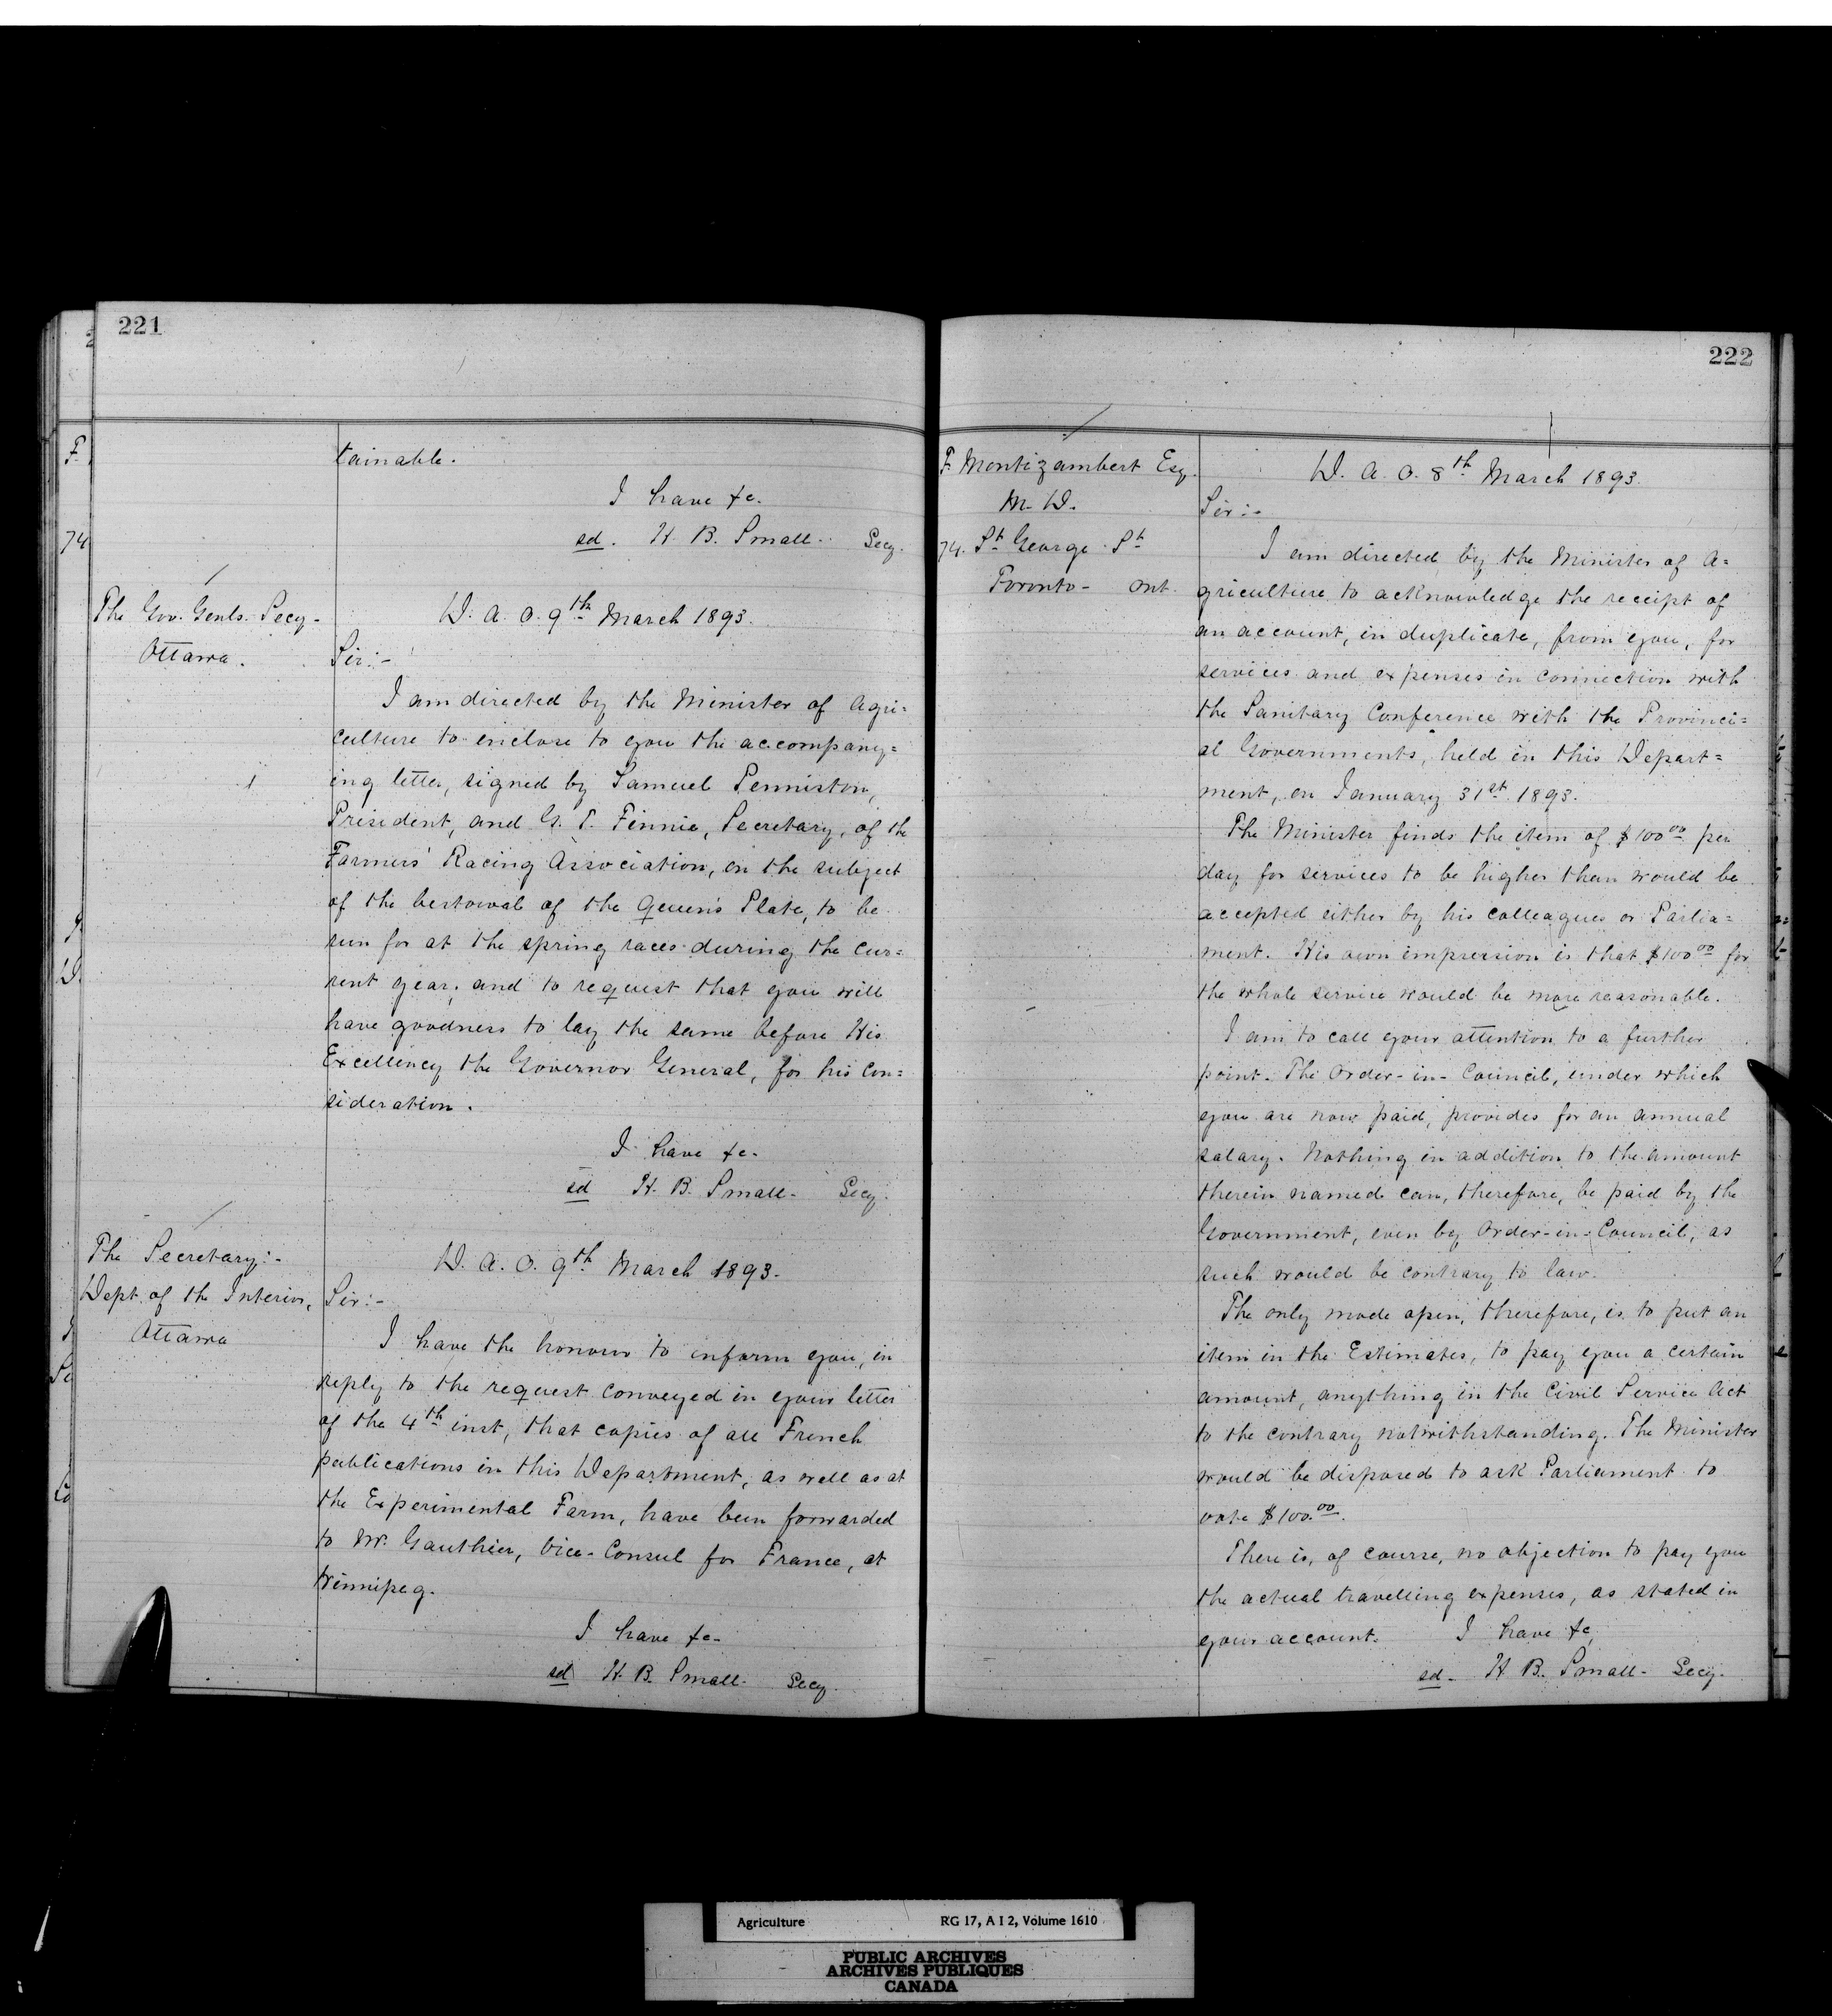 221
tainable.
I have &c.
sd. H. B. Small. Secy.
The Gov. Genls. Secy-
Ottawa.
D. A. O. 9th March 1893.
Sir:-
I am directed by the Minister of Agri=
culture to enclose to you the accompany=
ing letter, signed by Samuel Penniston,
President, and G. T. Finnie, Secretary, of the
Farmers' Racing Association, on the subject
of the bestowal of the Queen's Plate, to be
run for at the spring races during the cur=
rent year, and to request that you will
have goodness to lay the same before His
Excellency the Governor General, for his con=
sideration.
I have &c.
sd H. B. Small- Secy.
The Secretary:-
Dept. of the Interior,
Ottawa
D. A. O. 9th March 1893.
Sir:-
I have the honour to inform you, in
reply to the request conveyed in your letter
of the 4th inst, that copies of all French
publications in this Department, as well as at
the Experimental Farm, have been forwarded
to Mr. Gauthier, Vice-Consul for France, at
Winnipeg.
I have &c-
sd H. B. Small- Secy.
222
F. Montizambert Esq.
M. D.
74. St George St
Toronto- Ont.
D. A. O. 8th March 1893.
Sir:-
I am directed by the Minister of A=
griculture to acknowledge the receipt of
an account, in duplicate, from you, for
services and expenses in connection with
the Sanitary Conference with the Provinci=
al Governments, held in this Depart=
ment, on January 31st 1893.
The Minister finds the item of $100 00 per
day for services to be higher than would be
accepted either by his colleagues or Parlia=
ment. His own impression is that $100 00 for
the whole service would be more reasonable.
I am to call your attention to a further
point. The Order-in-Council, under which
you are now paid, provides for an annual
salary. Nothing in addition to the amount
therein named can, therefore, be paid by the
Government, even by Order-in-Council, as
such would be contrary to law.
The only mode open, therefore, is to put an
item in the Estimates, to pay you a certain
amount, anything in the Civil Service Act
to the contrary notwithstanding. The Minister
would be disposed to ask Parliament to
vote $100.00.
There is, of course, no objection to pay you
the actual travelling expenses, as stated in
your account. I have &c,
sd- H. B. Small- Secy.
Agriculture RG 17, A I 2, Volume 1610
PUBLIC ARCHIVES
ARCHIVES PUBLIQUES
CANADA